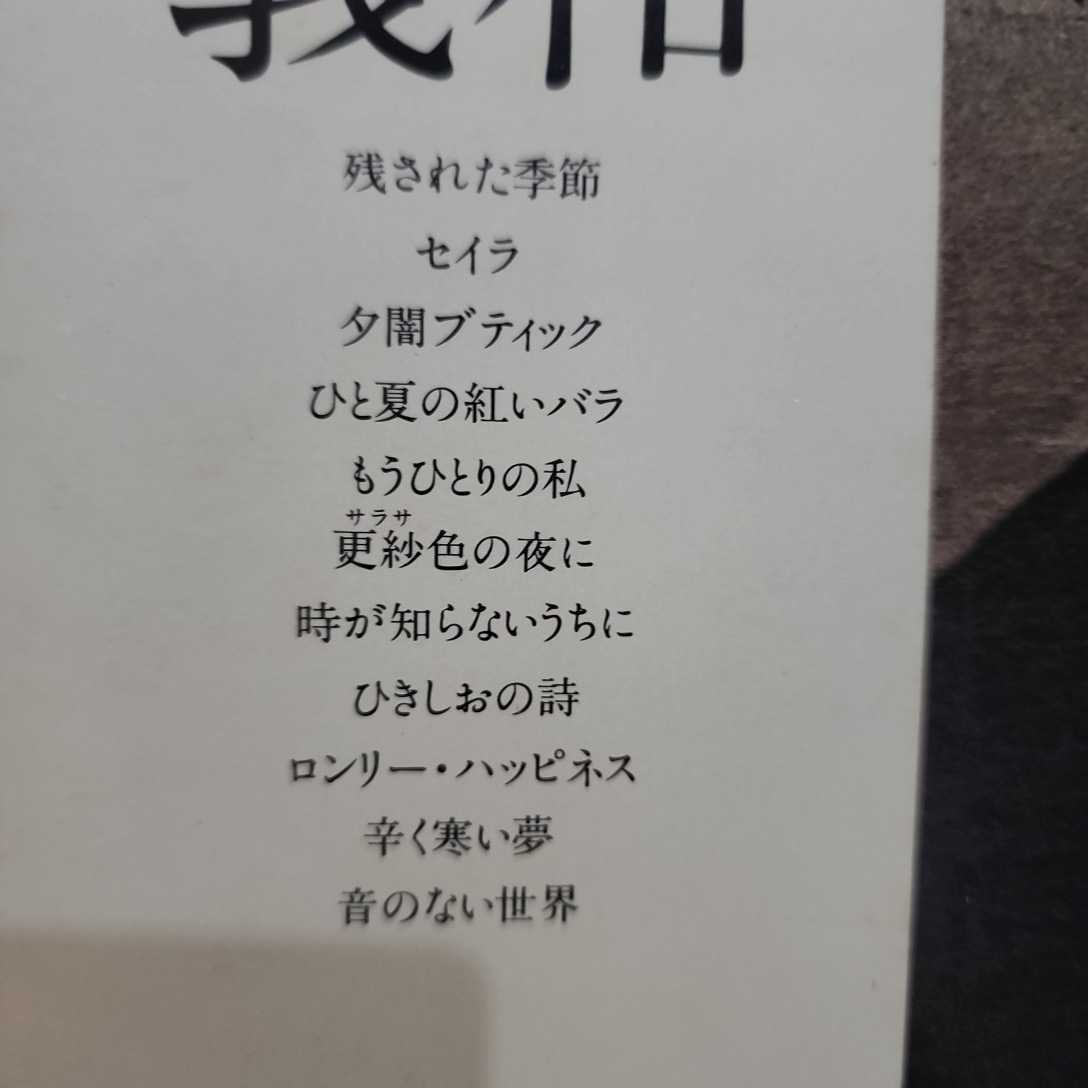 義和
残された季節
セイラ
夕闇ブティック
ひと夏の紅いバラ
もうひとりの私
サラサ
更紗色の夜に
時が知らないうちに
ひきしおの詩
ロンリー・ハッピネス
辛く寒い夢
音のない世界